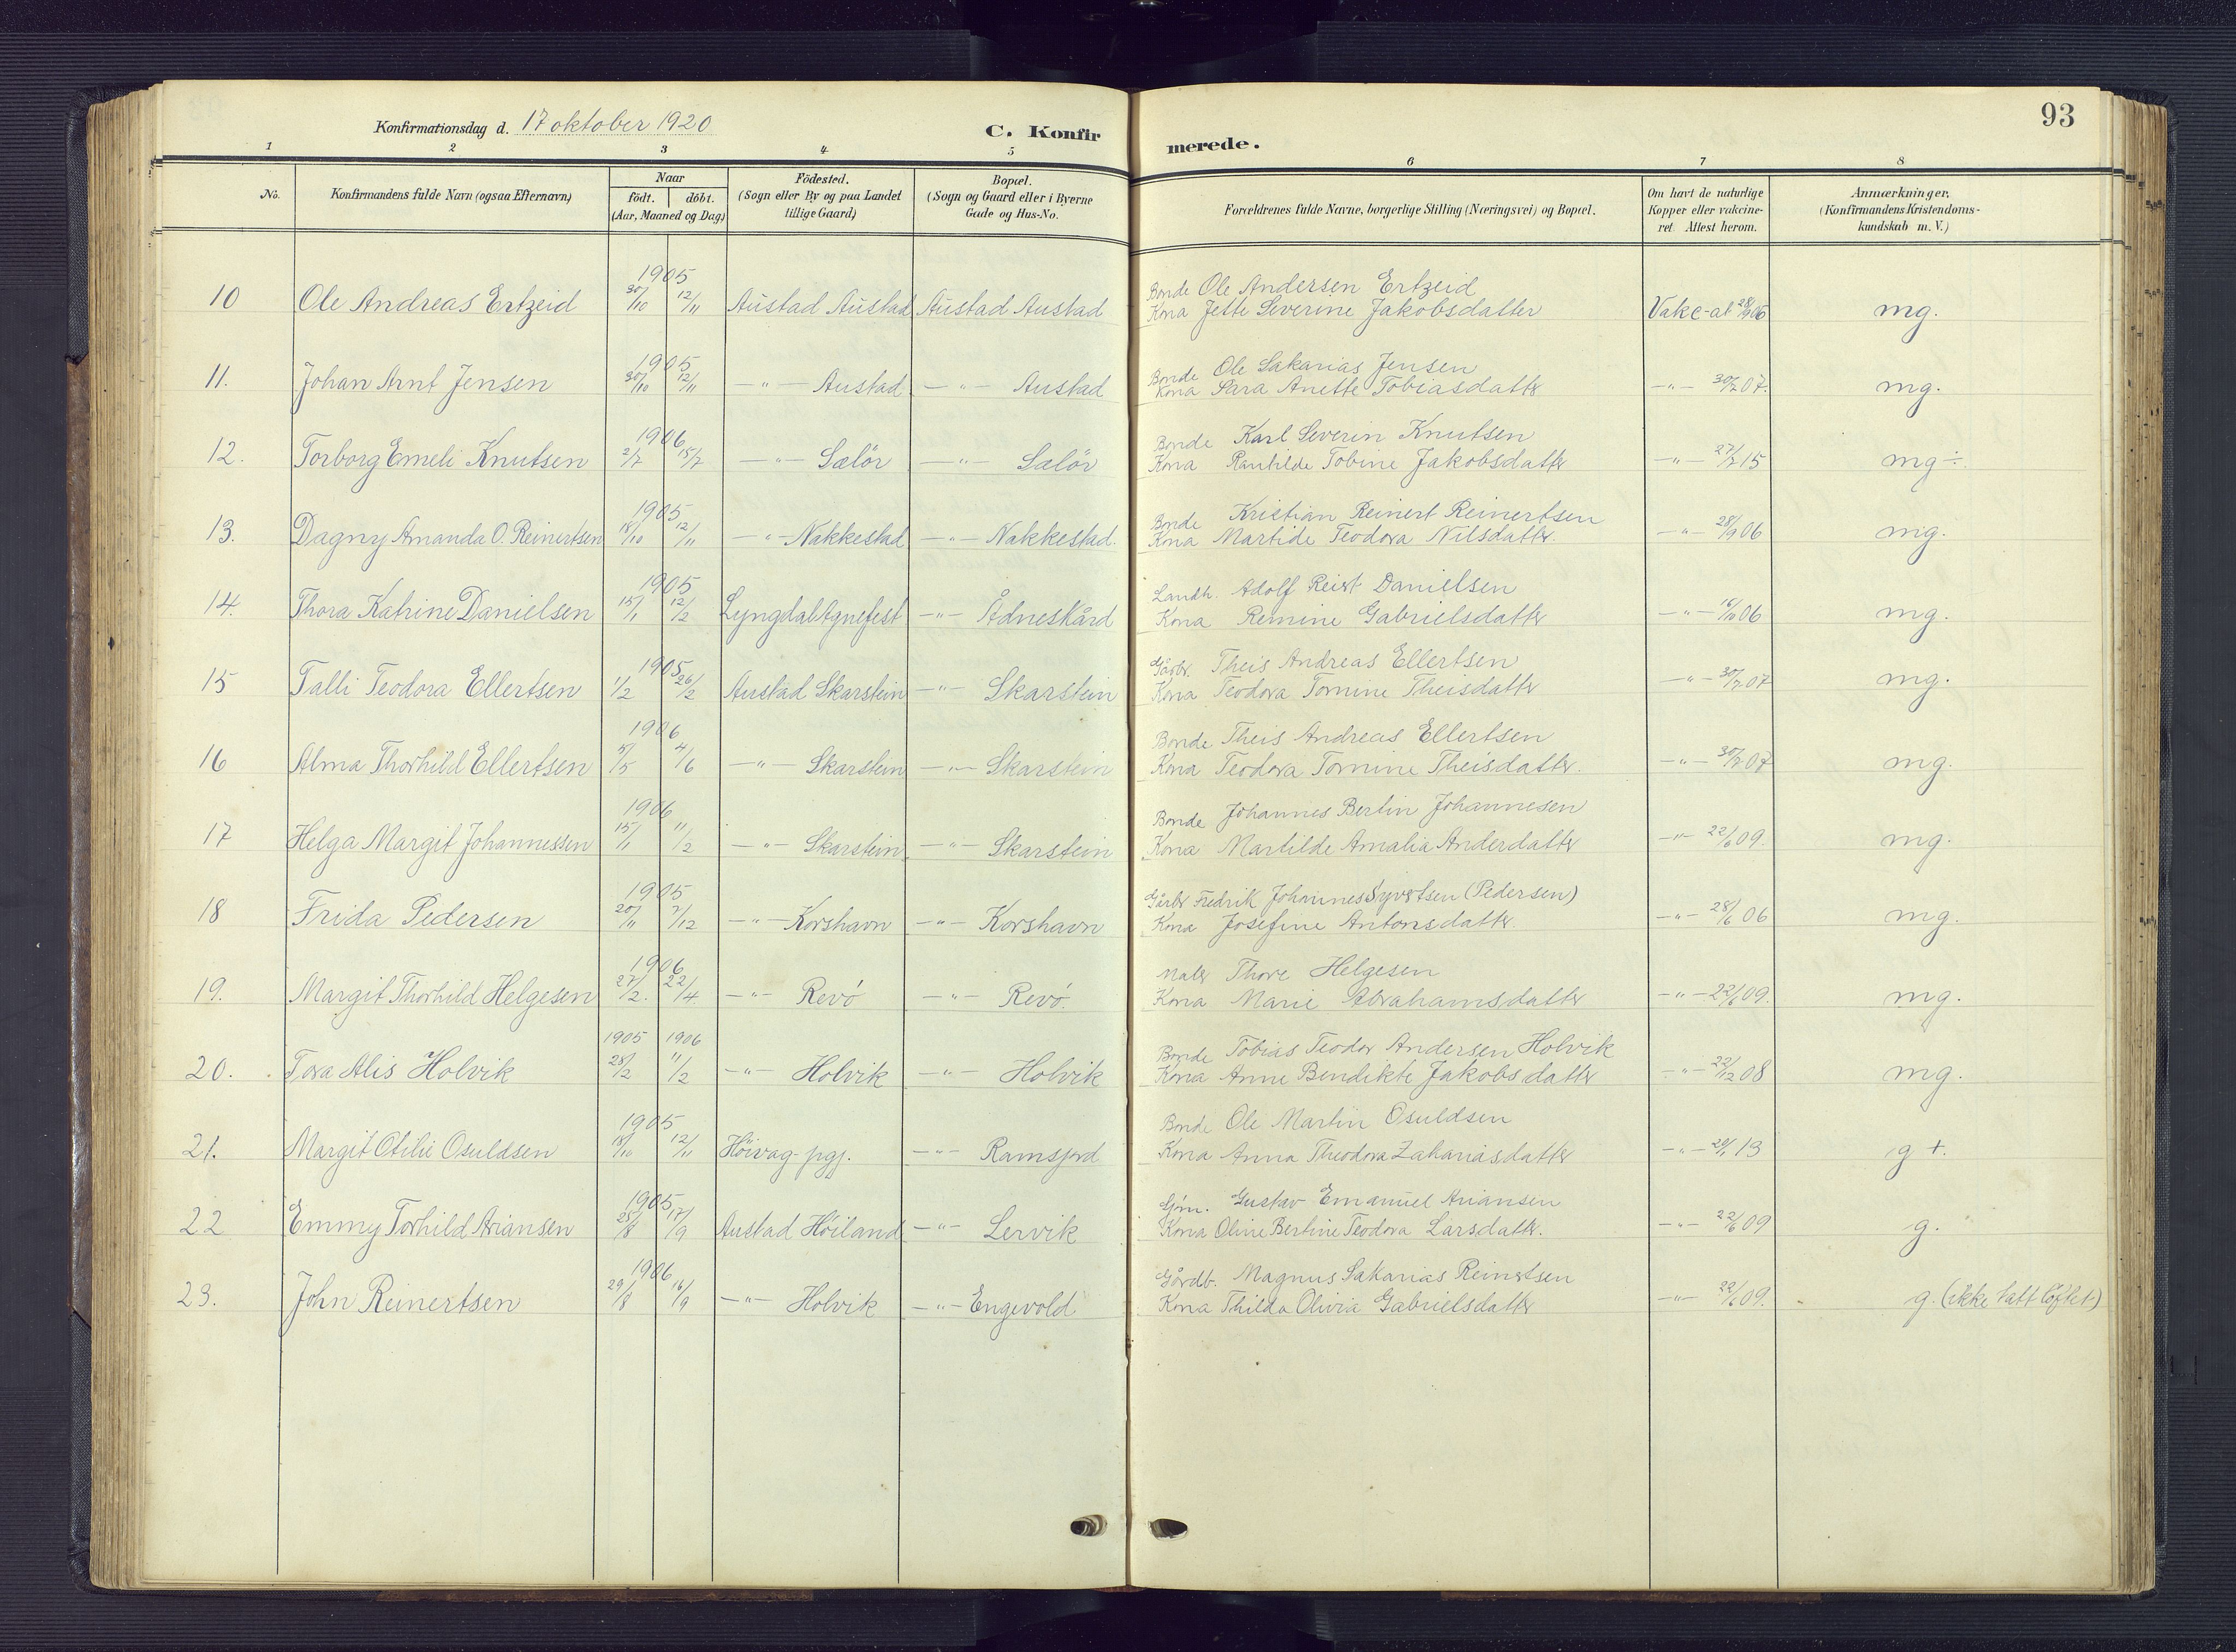 93
Konfirmationsdag d. 17 oktober 1920
C. Konfirmerede.
1 2 3 4 5 6 7 8
No. Konfirmandens fulde Navn (ogsaa Efternavn) Naar födt. döbt. (Aar, Maaned og Dag) Födested. (Sogn eller By og paa Landet tillige Gaard) Bopæl. (Sogn og Gaard eller i Byerne Gade og Hus-No. Forældrenes fulde Navne, borgerlige Stilling (Næringsvei) og Bopæl. Om havt de naturlige Kopper eller vakcineret. Attest herom. Anmærkninger, (Konfirmandens Kristendomskundskab m. V.)
1905 Bonde Ole Andersen Ertzeid
10 Ole Andreas Ertzeid 30/10 12/11 Austad Austad Austad Austad Kona Jette Severine Jakobsdatter Vakc-at 28/9 06 mg.
1905 Bonde Ole Sakarias Jensen
11. Johan Arnt Jensen 30/10 12/11 -"- Austad -"- Austad Kona Sara Anette Tobiasdatter -"- 30/7 07. mg.
1906 Bonde Karl Severin Knutsen
12. Torborg Emeli Knutsen 2/7 15/7 -"- Sælör -"- Sælör Kona Ranhilde Tobine Jakobsdatter -"- 27/7 15 mg ÷.
1905 Bonde Kristian Reinert Reinertsen
13. Dagny Amanda O. Reinertsen 18/10 12/11 -"- Nakkestad -"- Nakkestad. Kona Martide Teodora Nilsdatter. -"- 28/9 06 mg.
1905 Landh. Adolf Reist Danielsen
14. Thora Katrine Danielsen 15/1 12/2 Lyngdal Agnefest -"- Ådneskård Kona Remine Gabrielsdatter -"- 06 mg.
1905 Gårbr. Theis Andreas Ellertsen
15 Talli Teodora Ellertsen 1/2 26/2 Austad Skarstein -"- Skarstein Kona Teodora Tomine Theisdatter -"- 30/7 07 mg.
1906 Bonde Theis Andreas Ellertsen
16 Alma Thorhild Ellertsen 5/5 4/6 -"- Skarstein -"- Skarstein Kona Teodora Tomine Theisdatter. -"- 30/7 07 mg.
1906 Bonde Johannes Bertin Johannesen
17 Helga Margit Johannessen 15/1 11/2 -"- Skarstein -"- Skarstein Kona Martilde Amalia Anderdatter -"- 22/6 09. mg.
1905 Gårbr Fredrik Johannes Syvertsen (Pedersen)
18 Frida Pedersen 20/11 7/12 -"- Korshavn -"- Korshavn Kona Josefine Antonsdatter. -"- 28/6 06 mg.
1906 Maler Thore Helgesen
19. Margit Thorhild Helgesen 27/2. 22/4 -"- Revö -"- Revö. Kona Marie Abrahamsdatter -"- 22/6 09. mg.
1905 1906 Bonde Tobias Teodor Andersen Holvik
20. Tora Alis Holvik 28/2 11/2 -"- Holvik -"- Holvik Kona Anne Bendikte Jakobsdatter -"- 22/12 08 mg.
1905 Bonde Ole Martin Osuldsen
21. Margit Otilie Osuldsen 18/10 12/11 Höivag pgj. -"- Ramsjord Kona Anna Theodora Zakariasdatter -"- 13 g +.
1905 Sjöm. Gustav Emanuel Ariansen
22 Emmy Torhild Ariansen 25/8 17/9 Austad Höiland -"- Lervik Kona Oline Bertine Teodora Larsdatter. -"- 22/6 09 g.
1906 Gårdb. Magnus Sakarias Reinertsen
23. John Reinertsen 29/8 16/9 -"- Holvik -"- Engevold Kona Thilda Olivia Gabrielsdatter -"- 22/6 09. g. (ikke tatt löftet)